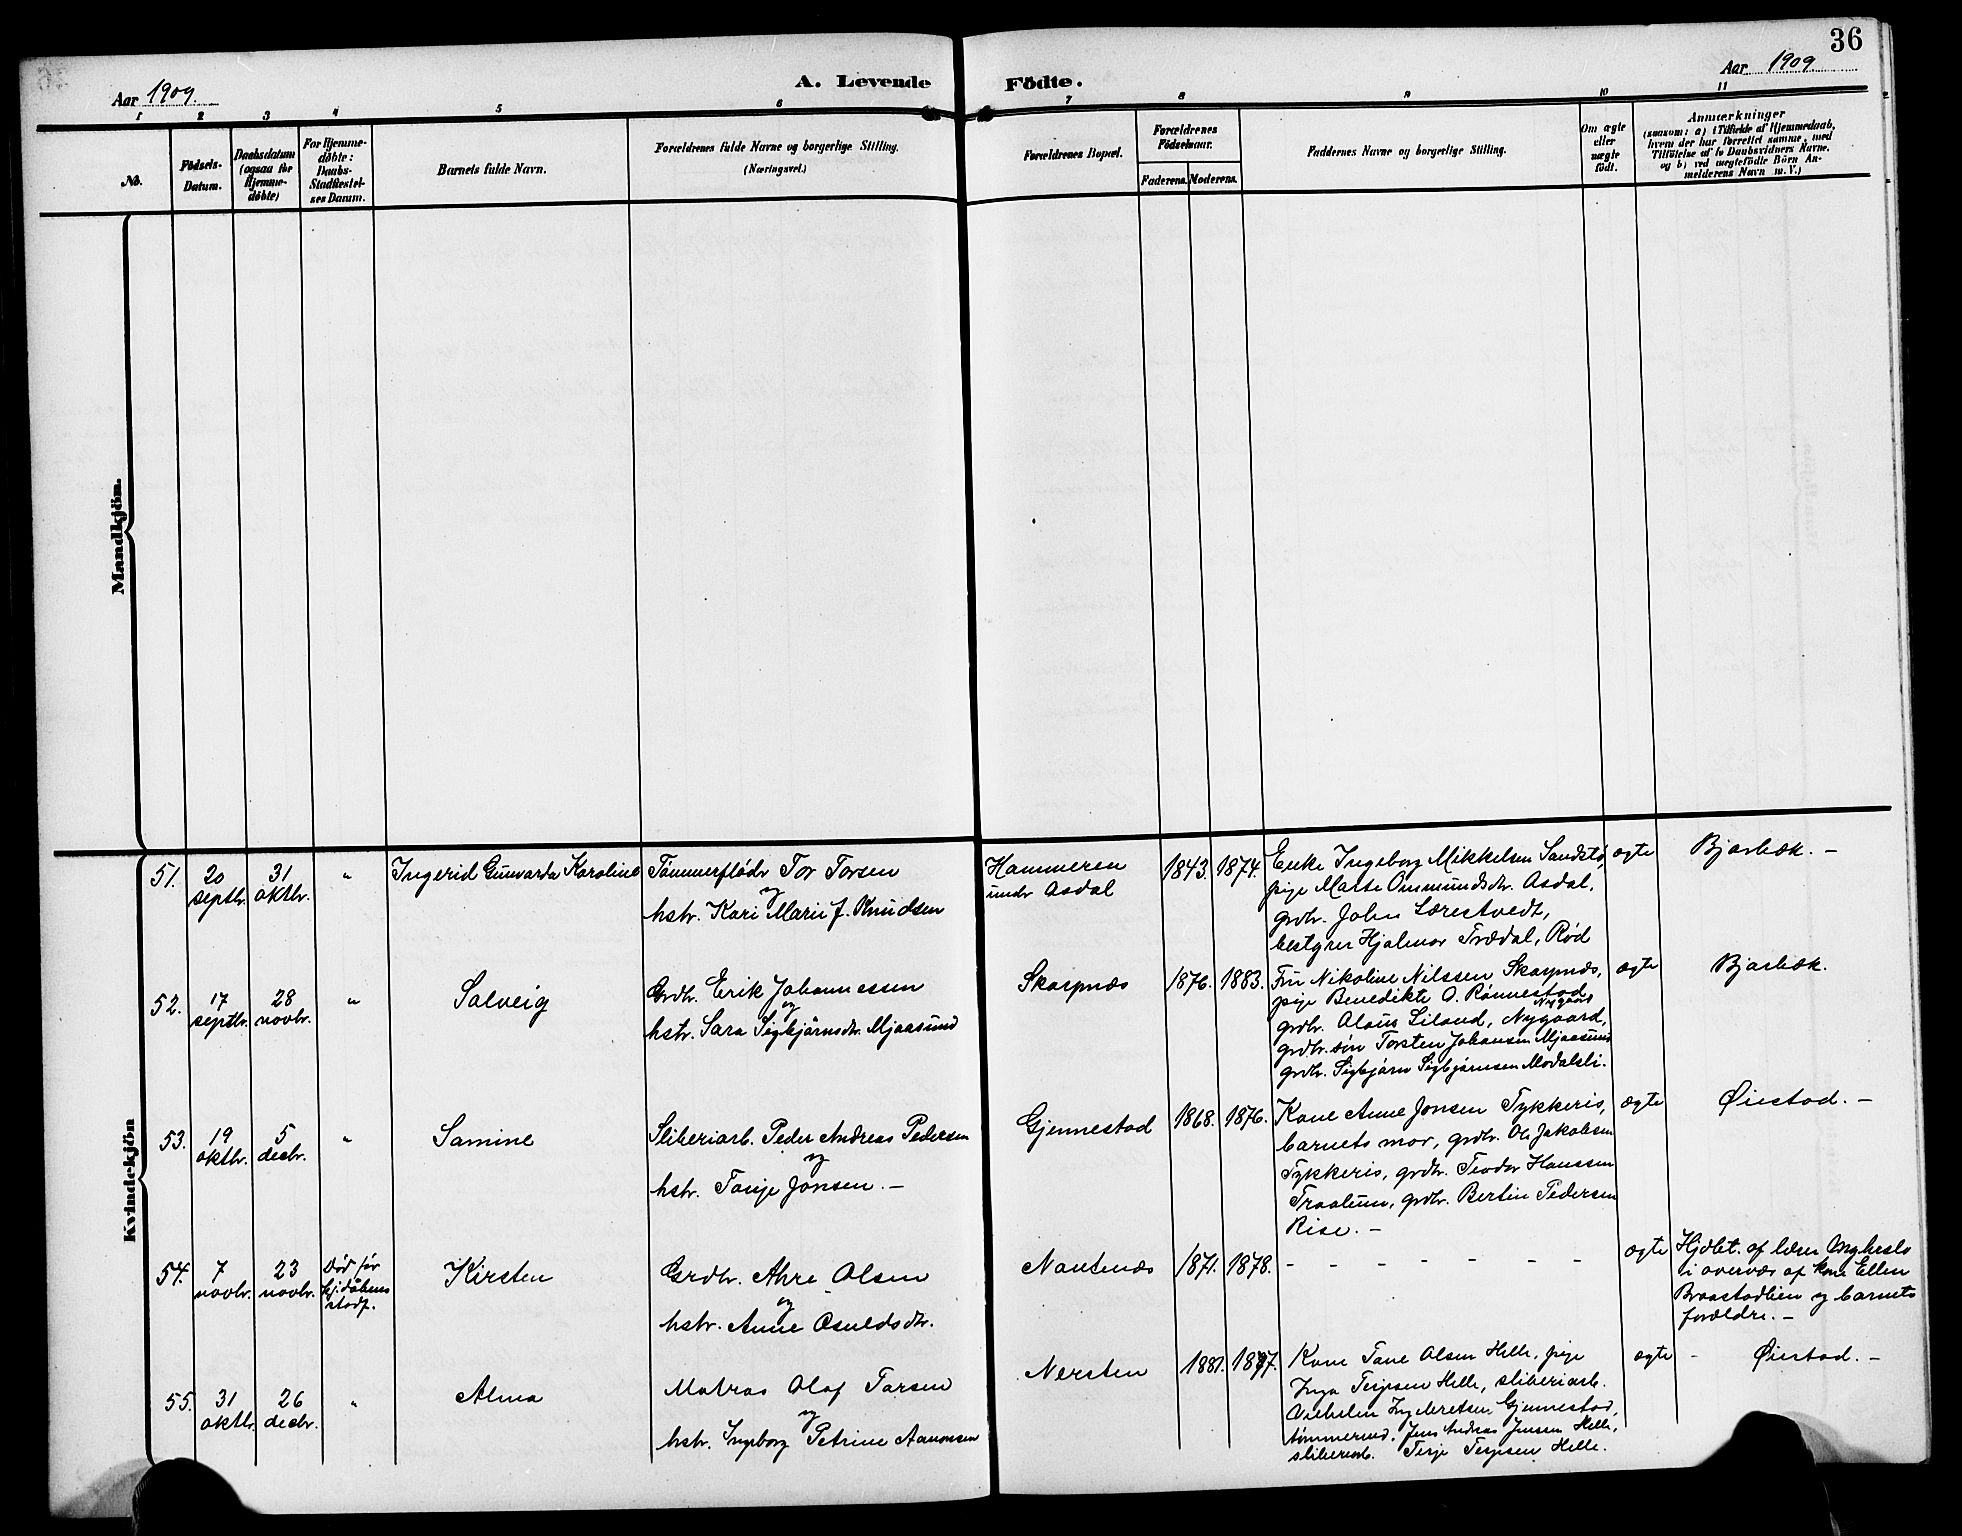 36
Aar 1909
A. Levende Födte.
Aar 1909
1 2 3 4 5 6 7 8 9 10 11
No.
Födsels-
Datum.
Daabsdatum
(ogsaa for
Hjemme-
döbte)
For Hjemme-
döbte:
Daabs-
Stadfæstel-
ses Datum.
Barnets fulde Navn.
Forældrenes fulde Navne og borgerlige Stilling.
(Næringsvei.)
Forældrenes Bopæl.
Forældrenes
Födselsaar.
Faderens. Moderens.
Faddernes Navne og borgerlige Stilling.
Om ægte
eller
uægte
födt.
Anmærkninger
(saasom: a) i Tilfælde af Hjemmedaab,
hvem der har forrettet samme, med
Tilföielse af to Daabsvidners Navne,
og b) ved uægtefödte Börn An-
melderens Navn m. V.)
Mandkjön.
Kvindekjön
51.
20
septbr.
31
oktbr.
"
Ingerid Gunvarda Karoline
Tømmerfløder Tor Torsen
og
hstr. Kari Marie J. Knudsen
Hammeren
under Asdal
1843. 1874.
Enke Ingeborg Mikkelsen Sandstø,
pige Marte Ommundsdtr. Asdal,
grdbr. John Lærestvedt,
bestyrer Hjalmar Trædal, Rød
ægte
Bjorbæk. –
52.
17
septbr.
28
novbr.
"
Solveig
Grdbr. Erik Johannessen
og
hstr. Sara Sigbjørnsdtr. Mjaasund
Skarpnæs
1876. 1883.
Fru Nikoline Nilssen Skarpnæs,
pige Benedikte O. Rønnestad
Nygaard
grdbr. Olaus Liland, Nygaard,
grdbr. søn Torsten Johansen Mjaasund
grdbr. Sigbjørn Sigbjørnsen Modalsli.
ægte
Bjorbæk.
53.
19
oktbr.
5
decbr.
"
Samine
Sliberiarb. Peder Andreas Pedersen
og
hstr. Tonje Jonsen. –
Gjennestad
1868. 1876.
Kone Anne Jonsen Tykkeris,
barnets mor, grdbr. Ole Jakobsen
Tykkeris, grdbr. Teodor Hanssen
Traalum, grdbr. Bertin Pedersen
Rise. –
ægte
Øiestad. –
54.
7
novbr.
23
novbr.
Død før
hj.døbens
stadf.
Kirsten
Grdbr. Ahre Olsen
og
hstr. Anne Osuldsdtr.
Nautenæs
1871. 1878.
– – – – – – –
ægte
Hjdbt. af lærer Ongheslo
i overvær af kone Ellen
Braastadlien og barnets
forældre. –
55.
31
oktbr.
26
decbr.
"
Alma
Matros Olaf Tarsen
og
hstr. Ingeborg Petrine Aanonsen
Nersten
1881. 1877.
Kone Tone Olsen Helle, pige
Inga Terjesen Helle, sliberiarb.
Vilhelm Ingebretsen Gjennestad,
tømmermd. Jens Andreas Jensen Helle,
sliberiarb. Terje Terjesen Helle.
ægte –
Øiestad. –